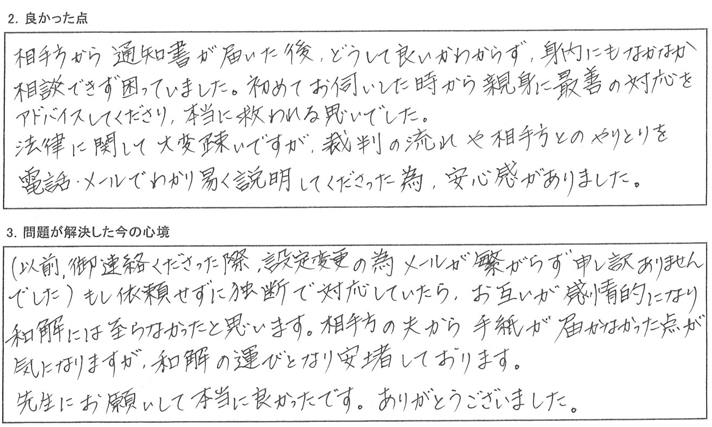 2. 良かった点
相手方から通知書が届いた後、どうして良いかわからず、身内にもなかなか
相談できず困っていました。初めてお伺いした時から親身に最善の対応を
アドバイスしてくださり、本当に救われる思いでした。
法律に関して大変疎いですが、裁判の流れや相手方とのやりとりを
電話・メールでわかり易く説明してくださった為、安心感がありました。
3. 問題が解決した今の心境
(以前、御連絡くださった際、設定変更の為メールが繋がらず申し訳ありません
でした)もし依頼せずに独断で対応していたら、お互いが感情的になり
和解には至らなかったと思います。相手方の夫から手紙が届かなかった点が
気になりますが、和解の運びとなり安堵しております。
先生にお願いして本当に良かったです。ありがとうございました。